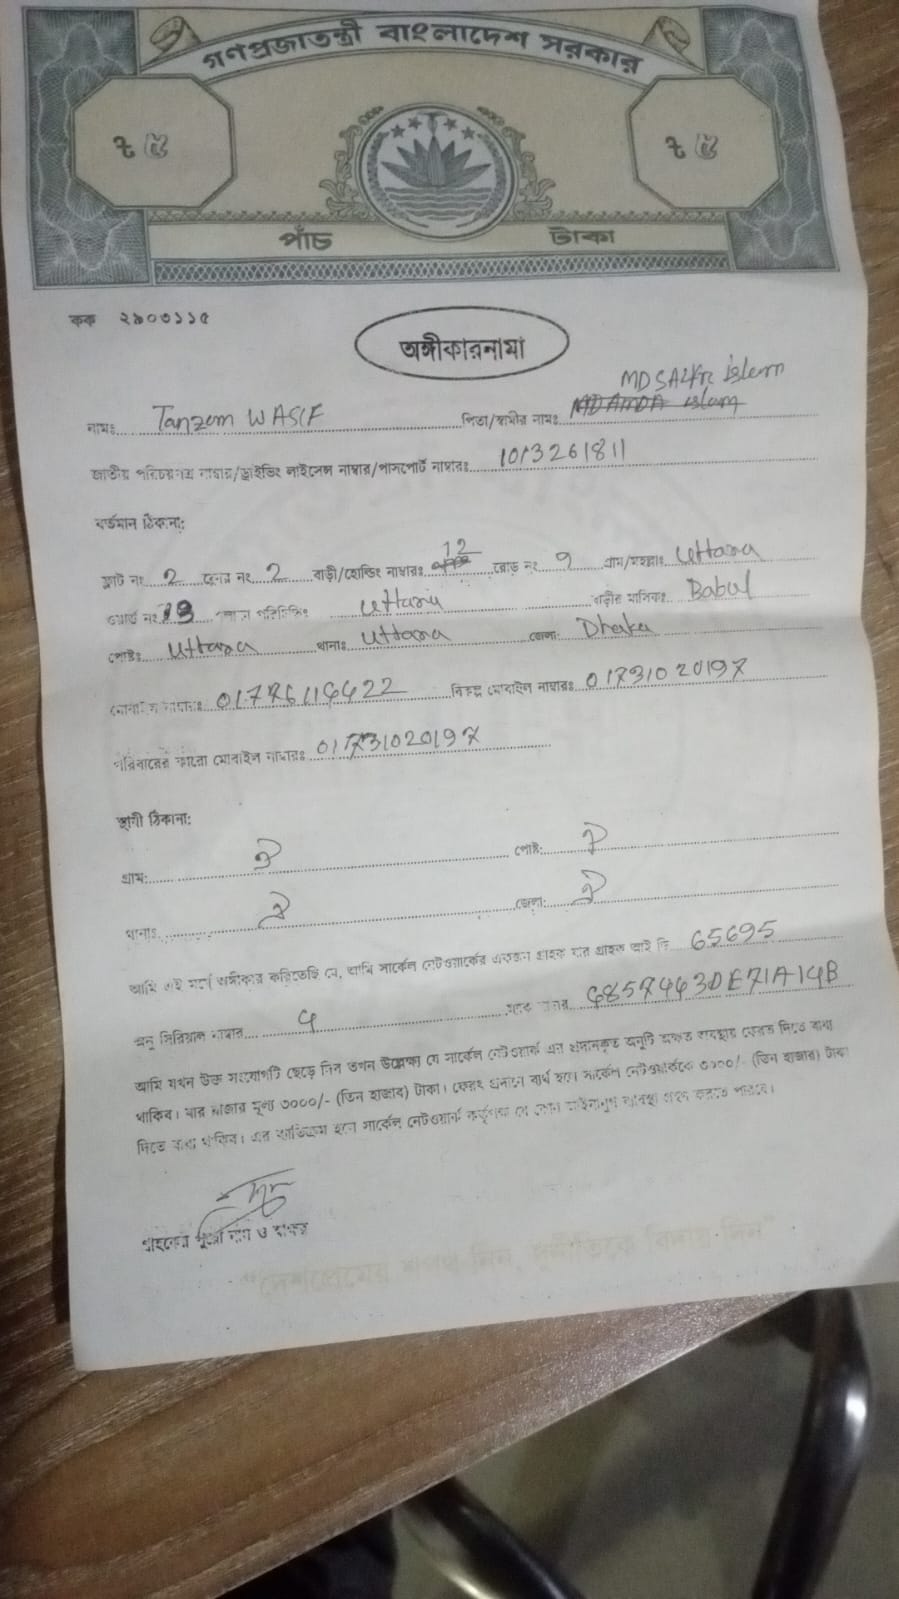 গণপ্রজাতন্ত্রী বাংলাদেশ সরকার
৳ ৫ ৳ ৫
পাঁচ টাকা
কক ২৯০৩১১৫
অঙ্গীকারনামা
নামঃ Tanzom WASIF পিতা/স্বামীর নামঃ islam
জাতীয় পরিচয়পত্র নাম্বার/ড্রাইভিং লাইসেন্স নাম্বার/পাসপোর্ট নাম্বারঃ 1013261811
বর্তমান ঠিকানা:
ফ্লাট নং 2 ফ্লোর নং 2 বাড়ী/হোল্ডিং নাম্বারঃ 12 রোড নং 9 গ্রাম/মহল্লাঃ Uttara
ওয়ার্ড নং Uttara বাড়ীর মালিকঃ Babul
পোষ্টঃ Uttara থানাঃ Uttara জেলা: Dhaka
বিকল্প মোবাইল নাম্বারঃ
পরিবারের কারো মোবাইল নাম্বারঃ
স্থায়ী ঠিকানা:
গ্রাম: পোষ্ট:
থানাঃ জেলা:
আমি এই মর্মে অঙ্গীকার করিতেছি যে, আমি সার্কেল নেটওয়ার্কের একজন গ্রাহক যার গ্রাহক আই ডি 65695
অনু সিরিয়াল নাম্বার
আমি যখন উক্ত সংযোগটি ছেড়ে দিব তখন উল্লেখ্য যে সার্কেল নেটওয়ার্ক এর প্রদানকৃত অনুটি অক্ষত অবস্থায় ফেরত দিতে বাধ্য
থাকিব। যার বাজার মূল্য ৩০০০/- (তিন হাজার) টাকা। ফেরৎ প্রদানে ব্যর্থ হলে সার্কেল নেটওয়ার্ককে ৩০০০/- (তিন হাজার) টাকা
দিতে বাধ্য থাকিব। এর ব্যতিক্রম হলে সার্কেল নেটওয়ার্ক কর্তৃপক্ষ যে কোন আইনানুগ ব্যবস্থা গ্রহণ করতে পারবে।
গ্রাহকের পুরো নাম ও স্বাক্ষর
"দেশপ্রেমের শপথ নিন, দুর্নীতিকে বিদায় দিন"